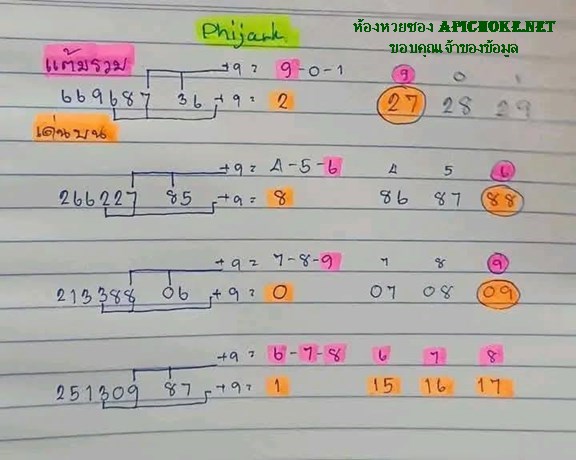 Phijank
ห้องหวยซอง APICHOKE.NET
ขอบคุณเจ้าของข้อมูล
แต้มรวม
+9 = 9-0-1 9 0 1
669687 36 +9 = 2 27 28 29
เด่นบน
+9 = 4-5-6 4 5 6
266227 85 +9 = 8 86 87 88
+9 = 7-8-9 7 8 9
213388 06 +9 = 0 07 08 09
+9 = 6-7-8 6 7 8
251309 87 +9 = 1 15 16 17